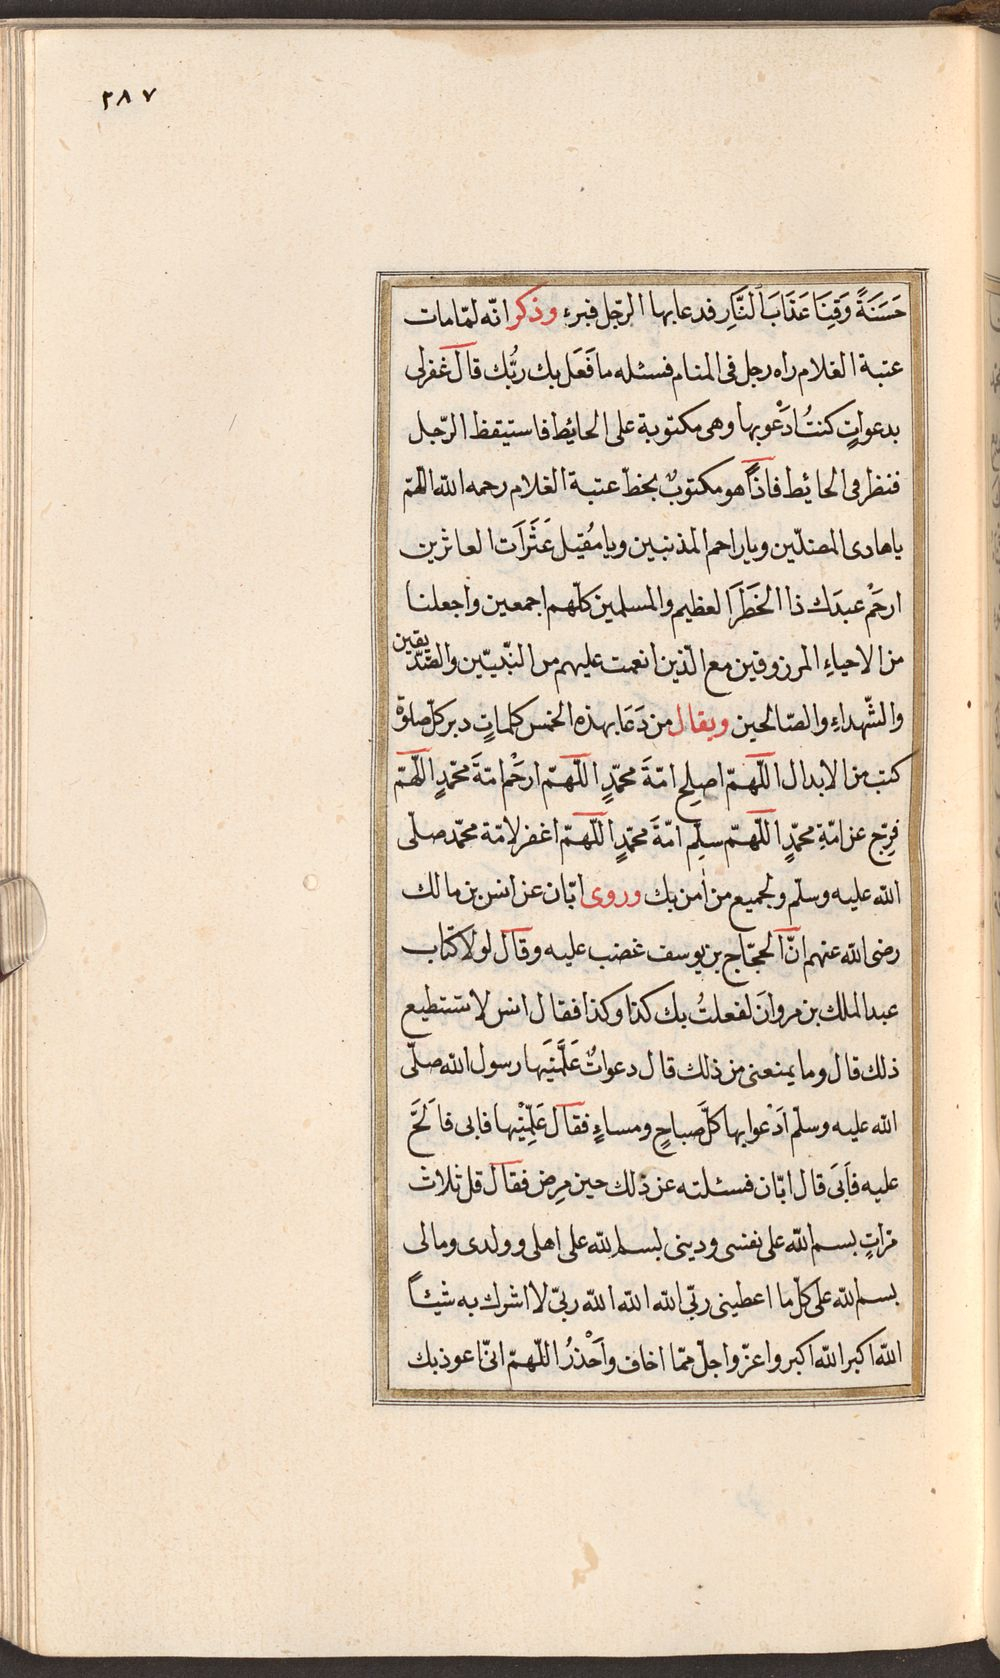 ٢٨٧
حَسَنَةً وَقِنَا عَذَابَ النَّارِ فدعا بها الرّجل فبرء وذكر انّه لمّا مات
عتبة الغلام راه رجل فى المنام فسئله ما فَعَل بك ربُّك قال غفر لى
بدعواتٍ كنتُ ادْعو بها وهى مكتوبة على الحائط فاستيقظ الرّجل
فنظر فى الحائط فاذاً هو مكتوبٌ بخطّ عتبة الغلام رحمه الله اللّهمّ
يا هادى المضلّين ويا راحم المذنبين ويا مُقيل عَثَرَات العاثرين
ارحَمْ عبدَك ذا الخَطَرَ العظيم والمسلمين كلّهم اجمعين واجعلنا
من الاحياءِ المرزوقين مع الّذين انعمت عليهم من النّبيّين والصّدّيقين
والشّهداءِ والصّالحين ويقال من دَعَا بهذه الخمس كلماتٍ دبر كلّ صلوة
كتب من الابدال اللّهمّ اصلِح امّةَ محمّدٍ اللّهمّ ارحَمْ امّةَ محمّدٍ اللّهمّ
فرّج عن امّةِ محمّدٍ اللّهمّ سلّم امّةَ محمّدٍ اللّهمّ اغفر لامّة محمّد صلّى
الله عليه وسلّم ولجميع من اٰمن بك وروى ابّان عن انس بن مالك
رضى الله عنهم انّ الحجّاج بن يوسف غضب عليه وقال لولا كتاب
عبد الملك بن مروانَ لفعلتُ بك كذا وكذا فقال انس لا تستطيع
ذلك قال وما يمنعنى من ذلك قال دعواتٌ عَلَّمَنِيَها رسول الله صلّى
الله عليه وسلّم ادْعوا بها كلَّ صَباحٍ ومساءٍ فقال عَلِّمْنِيْها فابى فاَلَحَّ
عليه فاَبَى قال ابّان فسئلته عن ذلك حين مرِض فقال قل ثلاث
مرّاتٍ بسم الله على نفسى ودينى بسم الله على اهلى وولدى ومالى
بسم الله على كلّ ما اعطينى ربّى الله الله الله ربّى لا اشرك به شيئاً
الله اكبر الله اكبر واعزّ واجلّ ممّا اخاف واَحْذرُ اللّهمّ انّى اعوذ بك